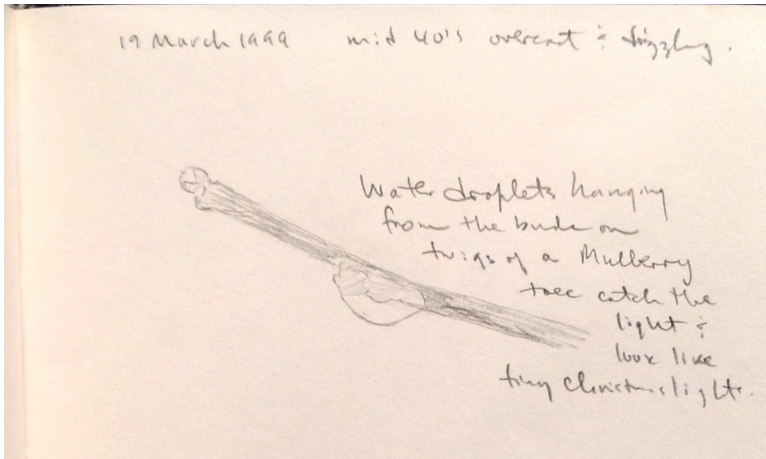 19 March 1999 mid 40's overcast & drizzling.
Water droplets hanging
from the buds on
twigs of a Mulberry
tree catch the
light &
look like
tiny Christmas lights.